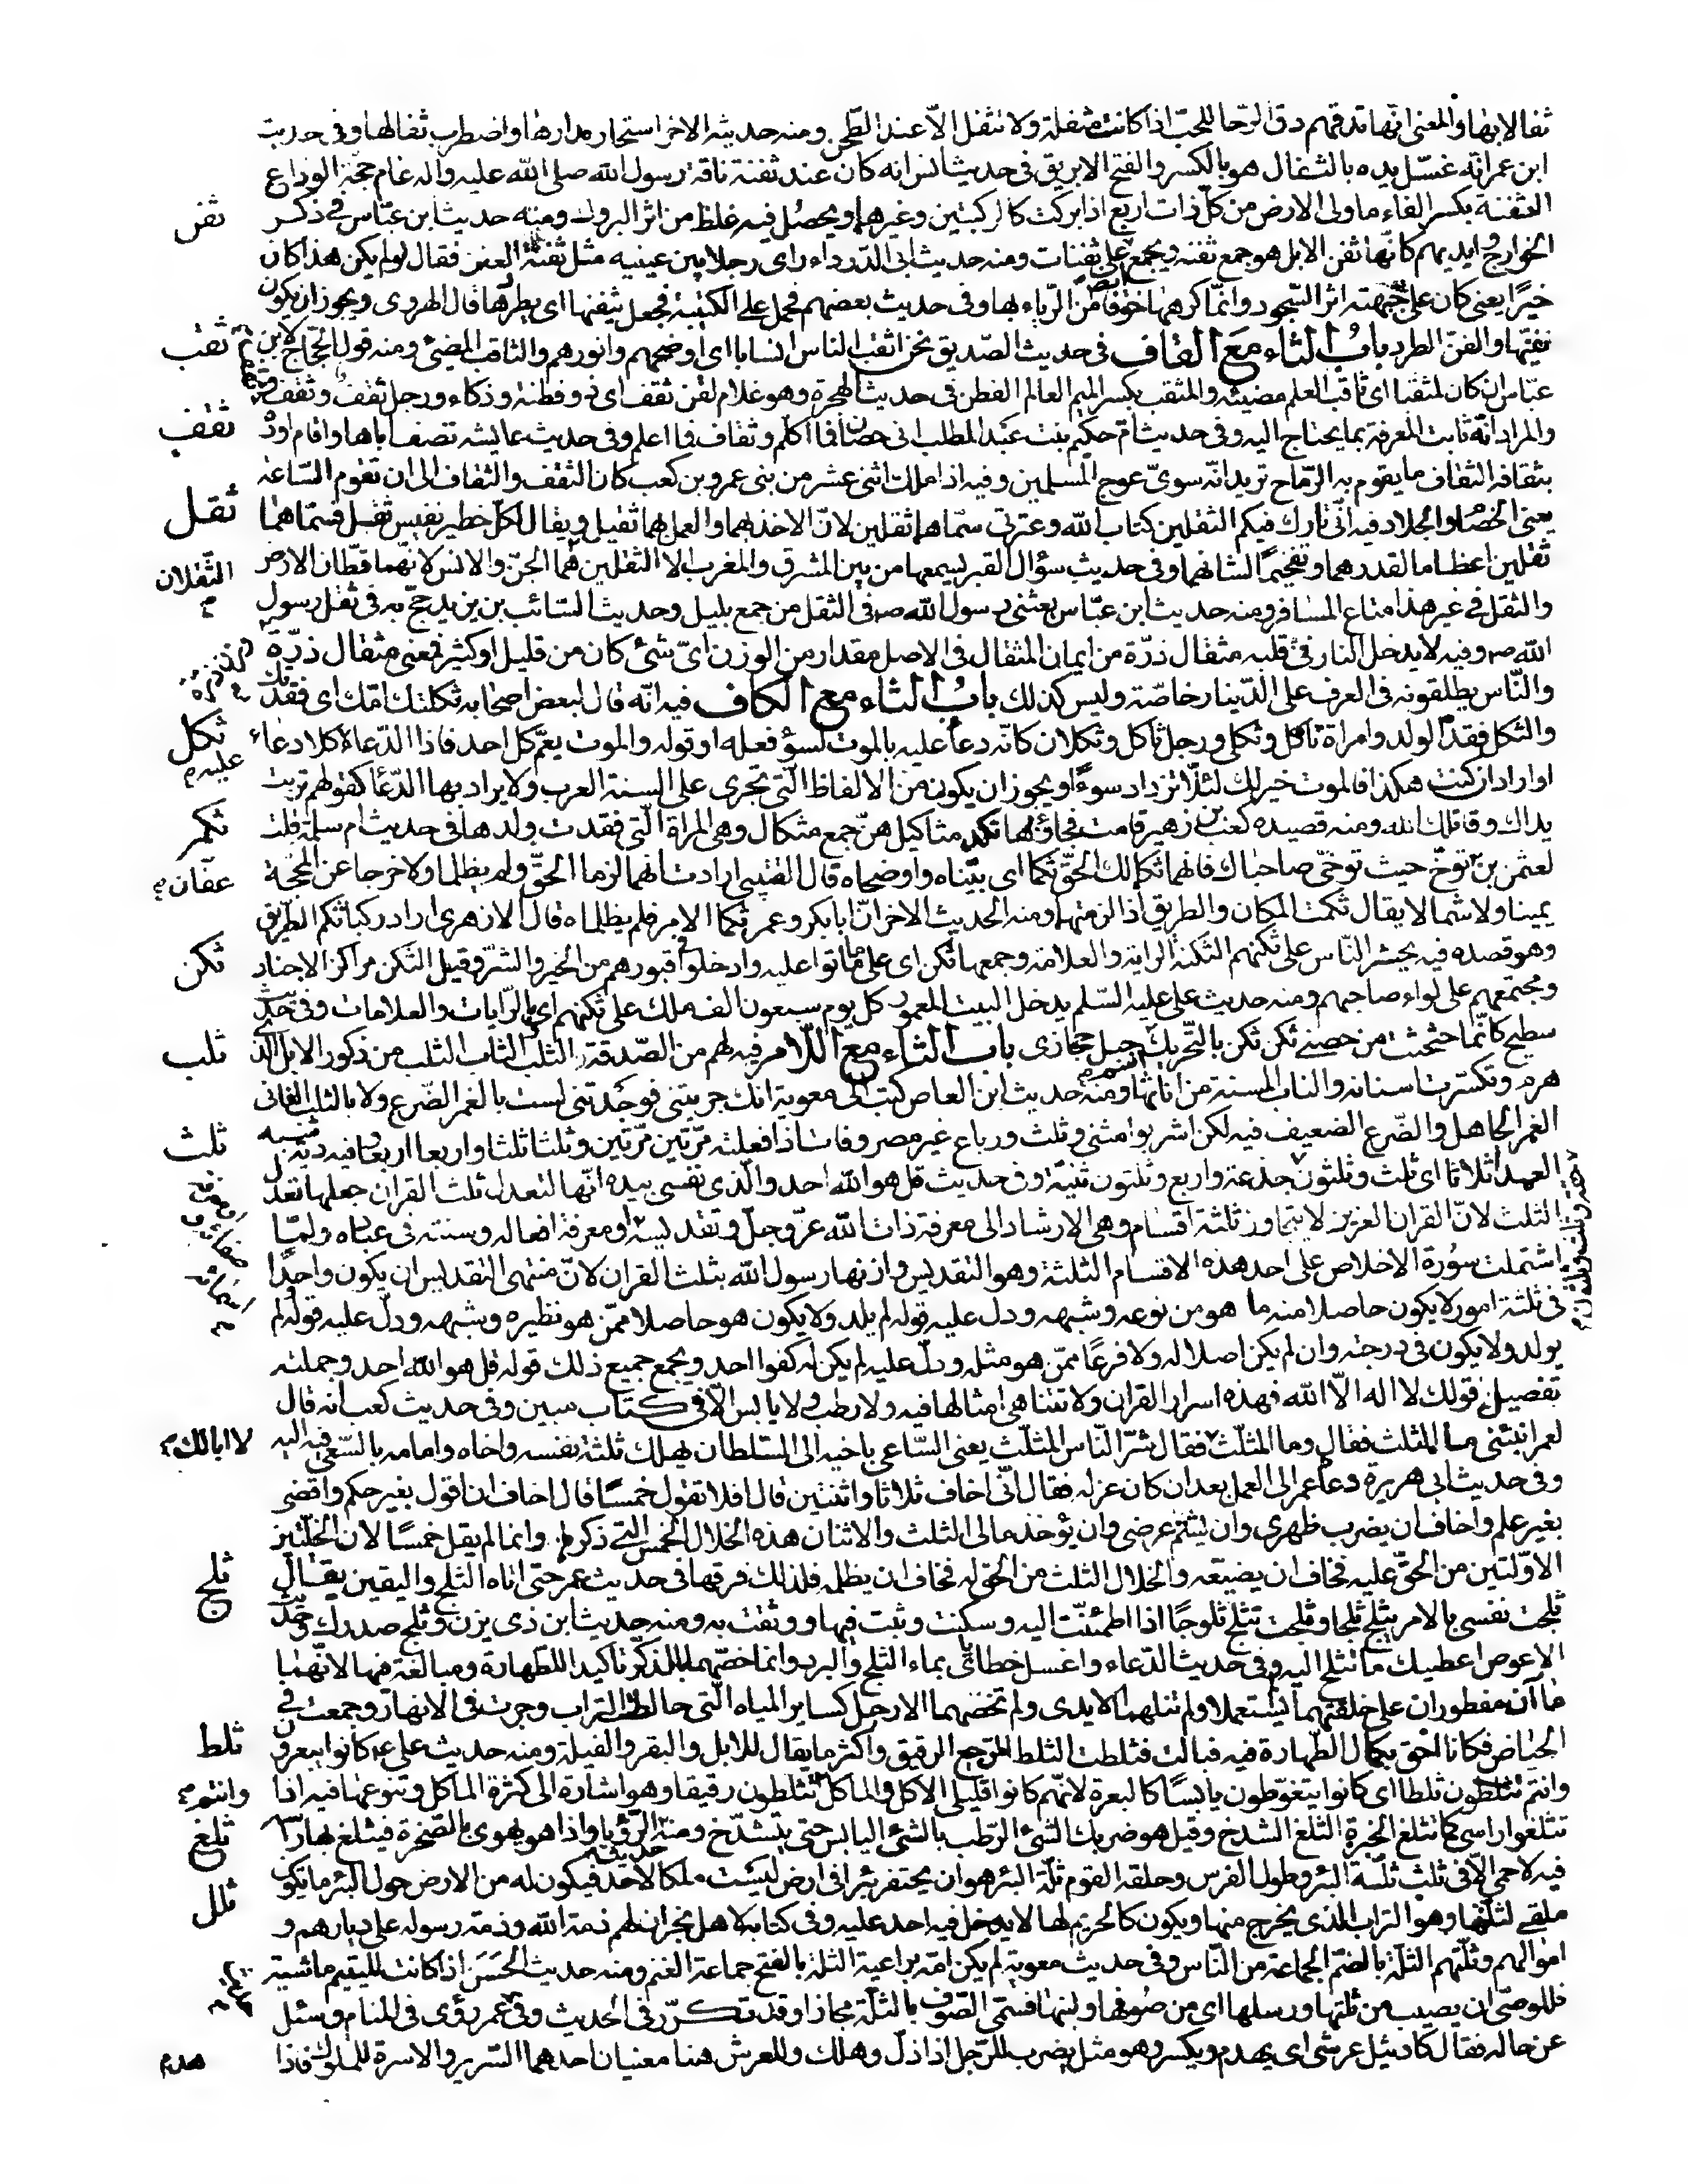 ثفالا بها والمعنى انها تدقهم دق الرحا للحب اذا كانت مثفلة ولا تثفل الا عند الطحن ومنه حديثه الاخر استحار مدارها واضطرب ثفالها وفى حديث
ابن عمر انه غسل يده بالثفال هو بالكسر والفتح الابريق فى حديث انس انه كان عند ثفنة ناقة رسول الله صلى الله عليه واله عام حجة الوداع
ثفن
الثفنة بكسر الفاء ما ولى الارض من كل ذات اربع اذا بركت كالركبتين وغيرهما ويحصل فيه غلظ من اثر البروك ومنه حديث ابن عباس فى ذكر
الخوارج وايديهم كانها ثفن الابل هو جمع ثفنه ويجمع على ثفنات ومنه حديث ابى الدرداء راى رجلا بين عينيه مثل ثفنة العنز فقال لو لم يكن هذا كان
خيرا يعنى كان على جبهته اثر السجود وانما كرهها خوفا من الرياء بها وفى حديث بعضهم فحمل على الكتيبة فجعل يثفنها اى يطردها قال الهروى ويجوز ان يكون
ثقب
يفنها والفن الطرد باب الثاء مع القاف فى حديث الصديق نحن اثقب الناس انسابا اى اوضحهم وانورهم والثاقب المضئ ومنه قول الحجاج لابن
عباس ان كان لمثقبا اى ثاقب العلم مضيئه والمثقب بكسر الميم العالم الفطن فى حديث الهجرة وهو غلام لقن ثقف اى ذو فطنة وذكاء ورجل ثقف وثقف
ثقف
والمراد انه ثابت المعرفة بما يحتاج اليه وفى حديث ام حكيم بنت عبد المطلب انى حصان فما اكلم وثقاف فما اعلم وفى حديث عايشه تصف اباها واقام اوده
بثقافه الثقاف ما يقوم به الرماح تريد انه سوى عوج المسلمين وفيه اذا ملك اثنى عشر من بنى عمرو بن كعب كان الثقف والثقاف الى ان تقوم الساعة
ثقل
يعنى الخصام والجلاد فيه انى تارك فيكم الثقلين كتاب الله وعترتى سماهما ثقلين لان الاخذ بهما والعمل بهما ثقيل ويقال لكل خطير نفيس ثقل فسماهما
الثقلان
ثقلين اعظاما لقدرهما وتفخيما لشانهما وفى حديث سؤال القبر يسمعها من بين المشرق والمغرب الا الثقلين هما الجن والانس لانهما قطان الارض
والثقل فى غير هذا متاع المسافر ومنه حديث ابن عباس بعثنى رسول الله ص فى الثقل من جمع بليل وحديث السائب بن يزيد حج به فى ثقل رسول
الله ص وفيه لا يدخل النار فى قلبه مثقال ذرة من ايمان المثقال فى الاصل مقدار من الوزن اى شئ كان من قليل او كثير فمعنى مثقال ذرة
والناس يطلقونه فى العرف على الدينار خاصة وليس كذلك باب الثاء مع الكاف فيه انه قال لبعض اصحابه ثكلتك امك اى فقدتك
ثكل
والثكل فقد الولد وامراة ثاكل وثكلى ورجل ثاكل وثكلان كانه دعا عليه بالموت لسؤ فعله او قوله والموت يعم كل احد فاذا الدعاء كلا دعاء
عليه
او اراد اذ كنت هكذا فالموت خير لك لئلا تزداد سوءا ويجوز ان يكون من الالفاظ التى تجرى على السنة العرب ولا يراد بها الدعا كقولهم تربت
ثكم
يداك وقاتلك الله ومنه قصيده كعب بن زهير قامت فجاوبها نكد مثاكيل هن جمع مثكال وهى المراة التى فقدت ولدها فى حديث ام سلمة قلت
عفان
لعثمن بن توخ حيث توخى صاحباك فانهما ثكما لك الحق ثكما اى بيناه واوضحاه قال القتيبى ارادت انهما لزما الحق ولم يظلما ولا خرجا عن المحجة
يمينا ولا شمالا يقال ثكمت المكان والطريق اذا لزمتهما ومنه الحديث الاخر ان ابا بكر وعمر ثكما الامر فلم يظلماه قال الازهرى اراد ركبا ثكم الطريق
ثكن
وهو قصده فيه يحشر الناس على ثكنهم الثكنة الراية والعلامة وجمعها ثكن اى على ما ماتوا عليه وادخلوا قبورهم من الخير والشر وقيل الثكن مراكز الاجناد
ومجتمعهم على لواء صاحبهم ومنه حديث على عليه السلم يدخل البيت المعمور كل يوم سبعون الف ملك على ثكنهم اى بالرايات والعلامات وفى حديث
ثلب
سطيح كانما حثحث من حضنى ثكن ثكن بالتحريك اسم جبل حجازى باب الثاء مع اللام فيه لهم من الصدقة الثلب والناب الثلب من ذكور الابل الذى
هرم وتكسرت اسنانه والناب المسنة من اناثها ومنه حديث ابن العاص كتب الى معوية انك جربتنى فوجدتنى لست بالغمر الضرع ولا بالثلب الفانى
ثلث
الغمر الجاهل والضرع الضعيف فيه لكن اشربوا مثنى وثلث ورباع غير مصروفات اذا فعلته مرتين مرتين وثلثا ثلثا واربعا اربعا وفيه دية شبه
العمد اثلاثا اى ثلث وثلثون جذعة واربع وثلثون ثنية وفى حديث قل هو الله احد والذى نفسى بيده انها لتعدل ثلث القران جعلها تعدل
الثلث لان القران العزيز لا يتجاوز ثلثة اقسام وهى الارشاد الى معرفة ذات الله عز وجل وتقديسه او معرفة افعاله وسنته فى عباده ولما
اشتملت سورة الاخلاص على احد هذه الاقسام الثلثة وهو التقديس وازنها رسول الله بثلث القران لان منتهى التقديس ان يكون واحدا
فى ثلثة امور لا يكون حاصلا منه ما هو من نوعه وشبهه ودل عليه قوله لم يلد ولا يكون هو حاصلا ممن هو نظيره وشبهه ودل عليه قوله لم
يولد ولا يكون فى درجته وان لم يكن اصلا له ولا فرعا ممن هو مثله ودل عليه لم يكن له كفوا احد ويجمع جميع ذلك قوله قل هو الله احد وجملته
تفصيل قولك لا اله الا الله فهذه اسرار القران ولا تتناهى امثالها فيه ولا رطب ولا يابس الا فى كتاب مبين وفى حديث كعب انه قال
لا ابا لك
لعمر انبئنى ما المثلث فقال وما المثلث فقال شر الناس المثلث يعنى الساعى باخيه الى السلطان يهلك ثلثة نفسه واخاه وامامه بالسعى فيه اليه
وفى حديث ابى هريرة دعاه عمر الى العمل بعد ان كان عزله فقال انى اخاف ثلاثا واثنتين قال افلا تقول خمسا قال اخاف ان اقول بغير حكم واقضى
بغير علم واخاف ان يضرب ظهرى وان يشتم عرضى وان يؤخذ مالى الثلث والاثنان هذه الخلال الخمس التى ذكرها وانما لم يقل خمسا لان الخلتين
الاولتين من الحق عليه فخاف ان يضيعه والخلال الثلث من الحق له فخاف ان يظلمه فلذلك فرقها فى حديث عمر حتى اتاه الثلج واليقين يقال
ثلج
ثلجت نفسى بالامر تثلج ثلجا وثلجت تثلج ثلوجا اذا اطمئنت اليه وسكنت وثبت فيها ووثقت به ومنه حديث ابن ذى يزن وثلج صدرك وحديث
الاحوص اعطيك ما تثلج اليه وفى حديث الدعاء واغسل خطاياى بماء الثلج والبرد وانما خصهما بالذكر تاكيدا للطهارة ومبالغة فيها لانهما
ماآن مفطوران على خلقتهما لم يستعملا ولم تنلهما الايدى ولم تخضهما الارجل كساير المياه التى خالطت التراب وجرت فى الانهار وجمعت فى
ثلط
الحياض فكانا احق بكمال الطهارة فيه فبالت فثلطت الثلط الرجيع الرقيق واكثر ما يقال للابل والبقر والفيلة ومنه حديث على ع كانوا يبعرون
وانتم
وانتم تثلطون ثلطا اى كانوا يتغوطون يابسا كالبعرة لانهم كانوا قليلى الاكل والماكل تثلطون رقيقا وهو اشارة الى كثرة الماكل وتنوعها فيه اذا
ثلغ
تثلغوا راسى كما تثلغ الخبزة الثلغ الشدخ وقيل هو ضربك الشئ الرطب بالشئ اليابس حتى يتشدخ ومنه حديث الرؤيا واذا هو يهوى بالصخرة فيثلغ بها راسه
ثلل
فيه لا حمى الا فى ثلث ثلة البئر وطول الفرس وحلقة القوم ثلة البئر هو ان يحتفر بئرا فى ارض ليست ملكا لاحد فيكون له من الارض حول البئر ما يكون
ملقى لثلتها وهو التراب الذى يخرج منها ويكون كالحريم لها لا يدخل فيه احد عليه وفى كتابه لاهل نجران لهم ذمة الله وذمة رسوله على ديارهم و
اموالهم وثلتهم الثلة بالضم الجماعة من الناس وفى حديث معوية لم يكن امه براعية الثلة بالفتح جماعة الغنم ومنه حديث الحسن اذا كانت لليتيم ماشية
فللوصى ان يصيب من ثلتها ورسلها اى من صوفها ولبنها فسمى الصوف بالثلة مجازا وقد تكرر فى الحديث وفى عمر رؤى فى المنام وسئل
هدم
عن حاله فقال كاد يثل عرشى اى يهدم ويكسر وهو مثل يضرب للرجل اذا ذل وهلك وللعرش هنا معنيان احدهما السرير والاسرة للملوك فاذا